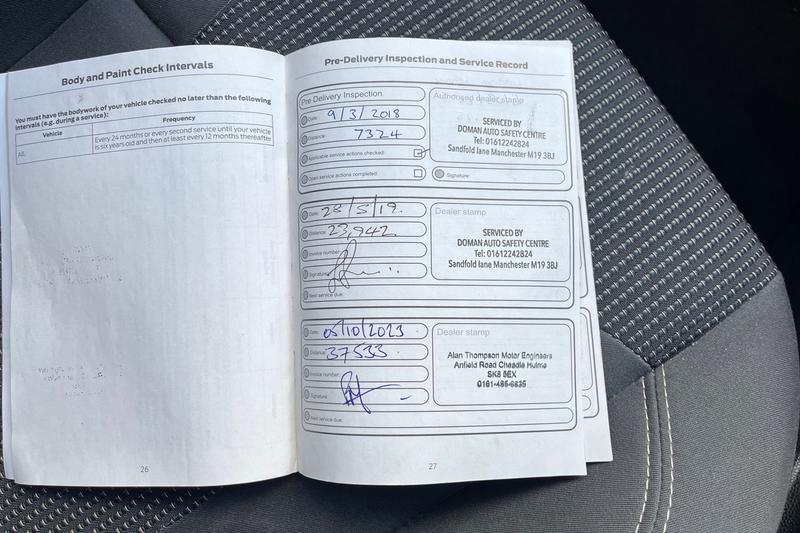 Body and Paint Check Intervals
You must have the bodywork of your vehicle checked no later than the following
intervals (e.g. during a service):
Vehicle
Frequency
All.
Every 24 months or every second service until your vehicle
is six years old and then at least every 12 months thereafter
26
Pre-Delivery Inspection and Service Record
Pre Delivery Inspection
Date: 9/3/2018
Distance: 7324
Applicable service actions checked:
Open service actions completed:
Authorised dealer stamp
SERVICED BY
DOMAN AUTO SAFETY CENTRE
Tel: 01612242824
Sandfold lane Manchester M19 3BJ
Signature:
Date: 28/5/19.
Distance: 23,942
Invoice number:
Signature:
Next service due:
Dealer stamp
SERVICED BY
DOMAN AUTO SAFETY CENTRE
Tel: 01612242824
Sandfold lane Manchester M19 3BJ
Date: 05/10/2023
Distance: 37533
Invoice number:
Signature:
Next service due:
Dealer stamp
Alan Thompson Motor Engineers
Anfield Road Cheadle Hulme
SK8 5EX
0161-485-6835
27